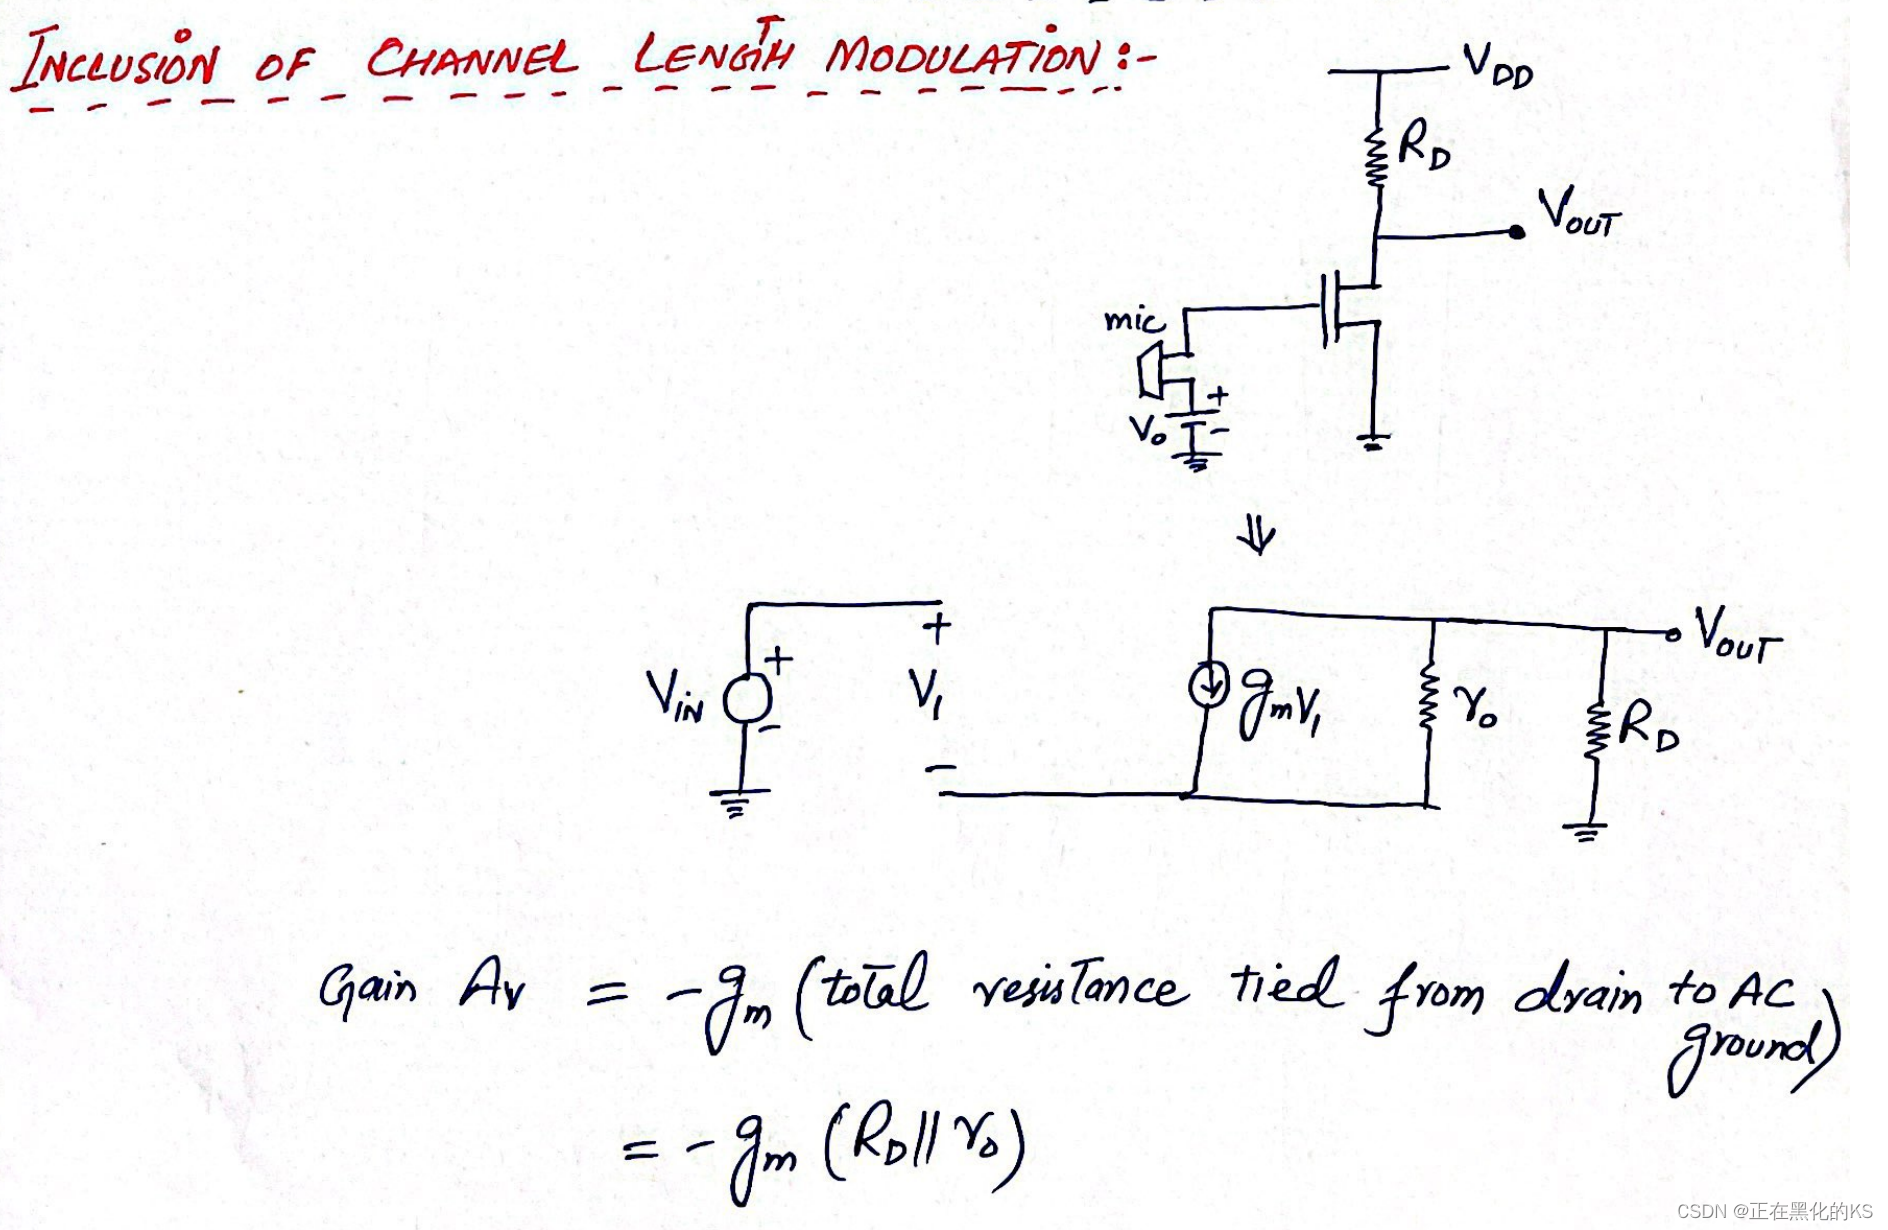 INCLUSION OF CHANNEL LENGTH MODULATION :-
VDD
RD
VOUT
mic
+
Vo
-
⇓
+
VOUT
+
VIN
V1
gmV1
ro
RD
-
-
Gain Av = -gm (total resistance tied from drain to AC
ground)
= -gm (RD || ro)
CSDN @正在黑化的KS